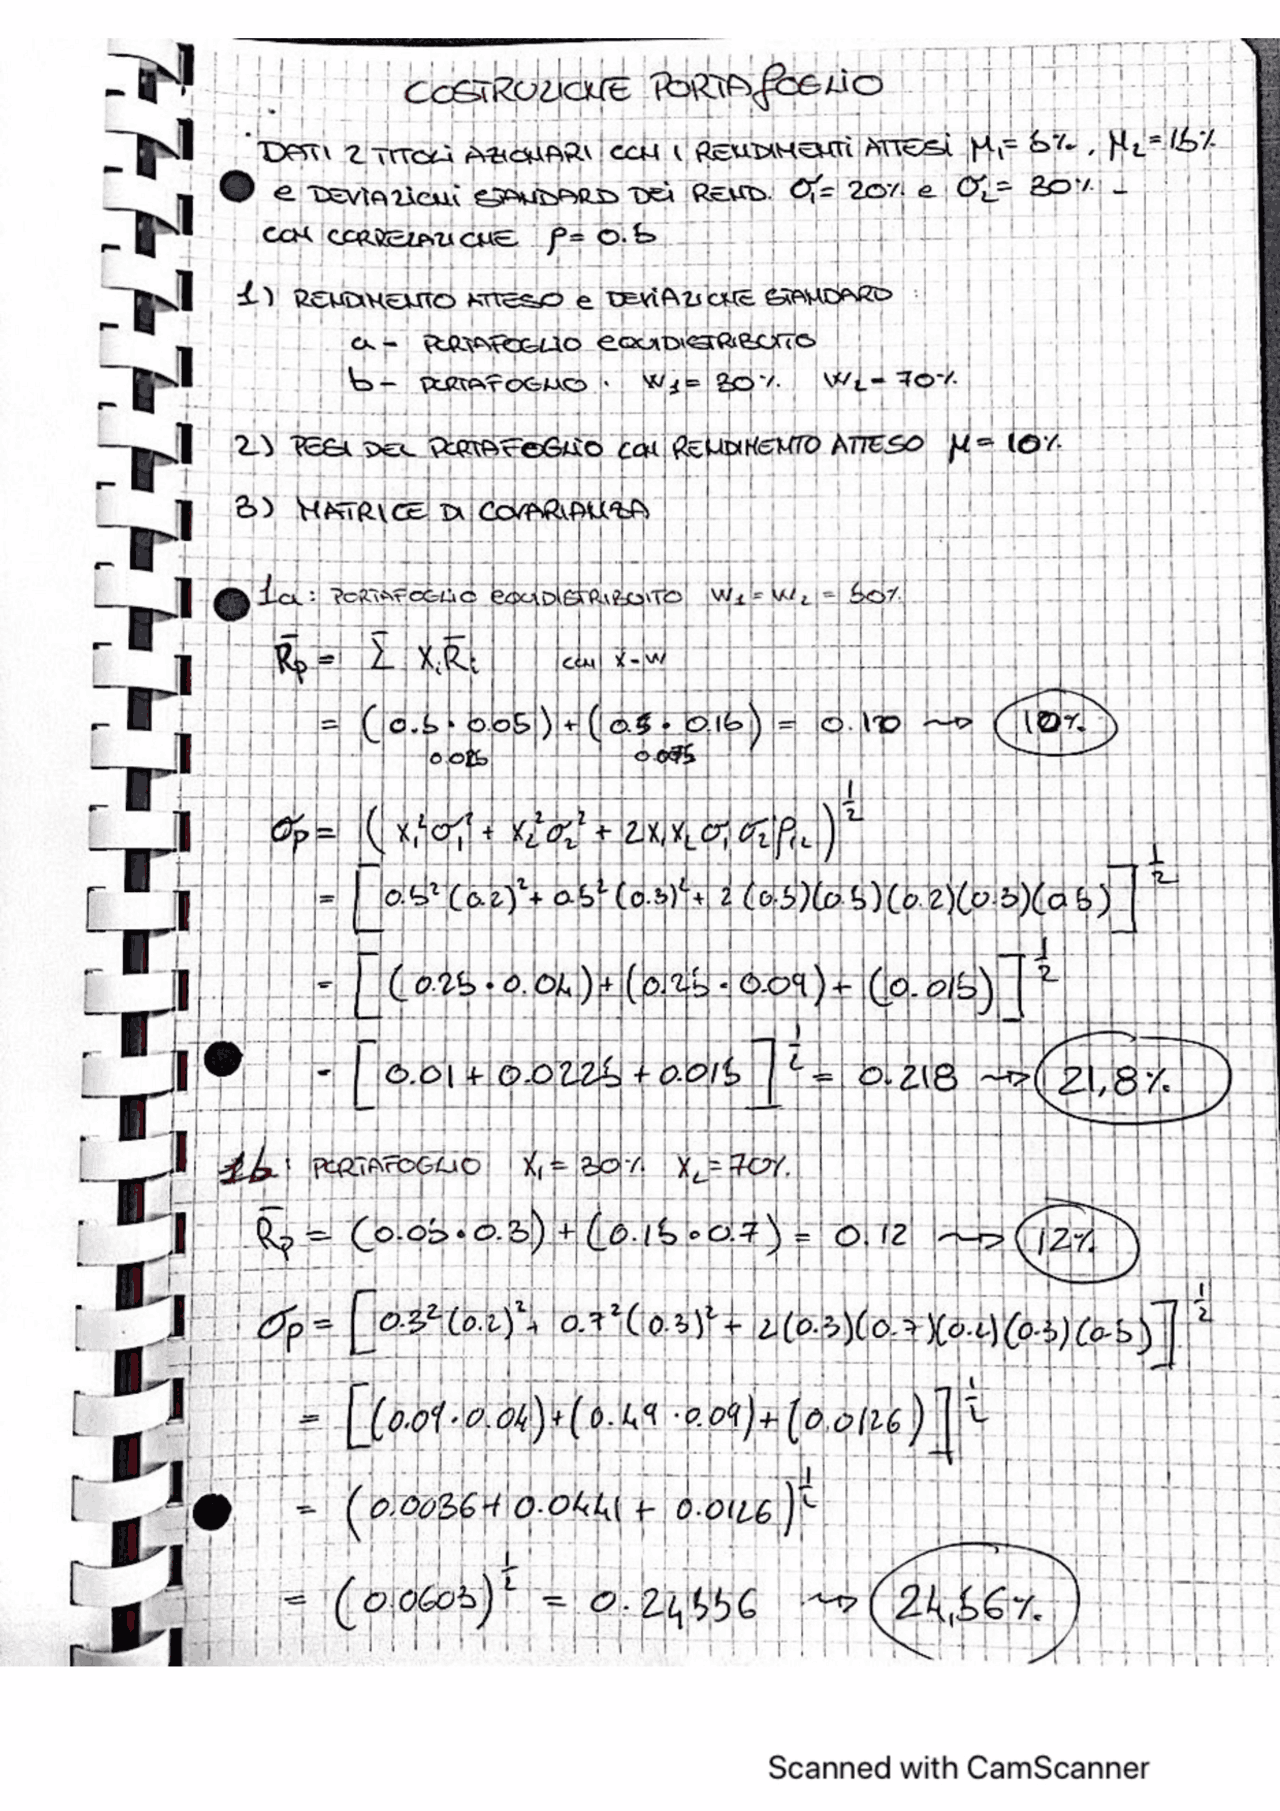 COSTRUZIONE PORTAFOGLIO
DATI 2 TITOLI AZIONARI CON I RENDIMENTI ATTESI μ₁= 5%, μ₂=15%
e DEVIAZIONI STANDARD DEI REND. σ₁= 20% e σ₂= 30% -
CON CORRELAZIONE ρ= 0.5
1) RENDIMENTO ATTESO e DEVIAZIONE STANDARD :
a - PORTAFOGLIO EQUIDISTRIBUITO
b - PORTAFOGLIO . W₁= 30% W₂= 70%
2) PESI DEL PORTAFOGLIO CON RENDIMENTO ATTESO μ = 10%
3) MATRICE DI COVARIANZA
1a: PORTAFOGLIO EQUIDISTRIBUITO W₁=W₂ = 50%
R̄p = Σ XᵢR̄ᵢ con x=w
= (0.5 · 0.05) + (0.5 · 0.15) = 0.10 ⇝ 10%
0.025 0.075
σp = (x₁²σ₁² + x₂²σ₂² + 2x₁x₂σ₁σ₂ρ₁₂)^½
= [0.5²(0.2)² + 0.5²(0.3)² + 2(0.5)(0.5)(0.2)(0.3)(0.5)]^½
= [(0.25 · 0.04) + (0.25 · 0.09) + (0.015)]^½
= [0.01 + 0.0225 + 0.015]^½ = 0.218 ⇝ 21,8%
1b: PORTAFOGLIO X₁ = 30% X₂ = 70%
R̄p = (0.05 · 0.3) + (0.15 · 0.7) = 0.12 ⇝ 12%
σp = [0.3²(0.2)² + 0.7²(0.3)² + 2(0.3)(0.7)(0.2)(0.3)(0.5)]^½
= [(0.09 · 0.04) + (0.49 · 0.09) + (0.0126)]^½
= (0.0036 + 0.0441 + 0.0126)^½
= (0.0603)^½ = 0.24556 ⇝ 24,56%
Scanned with CamScanner